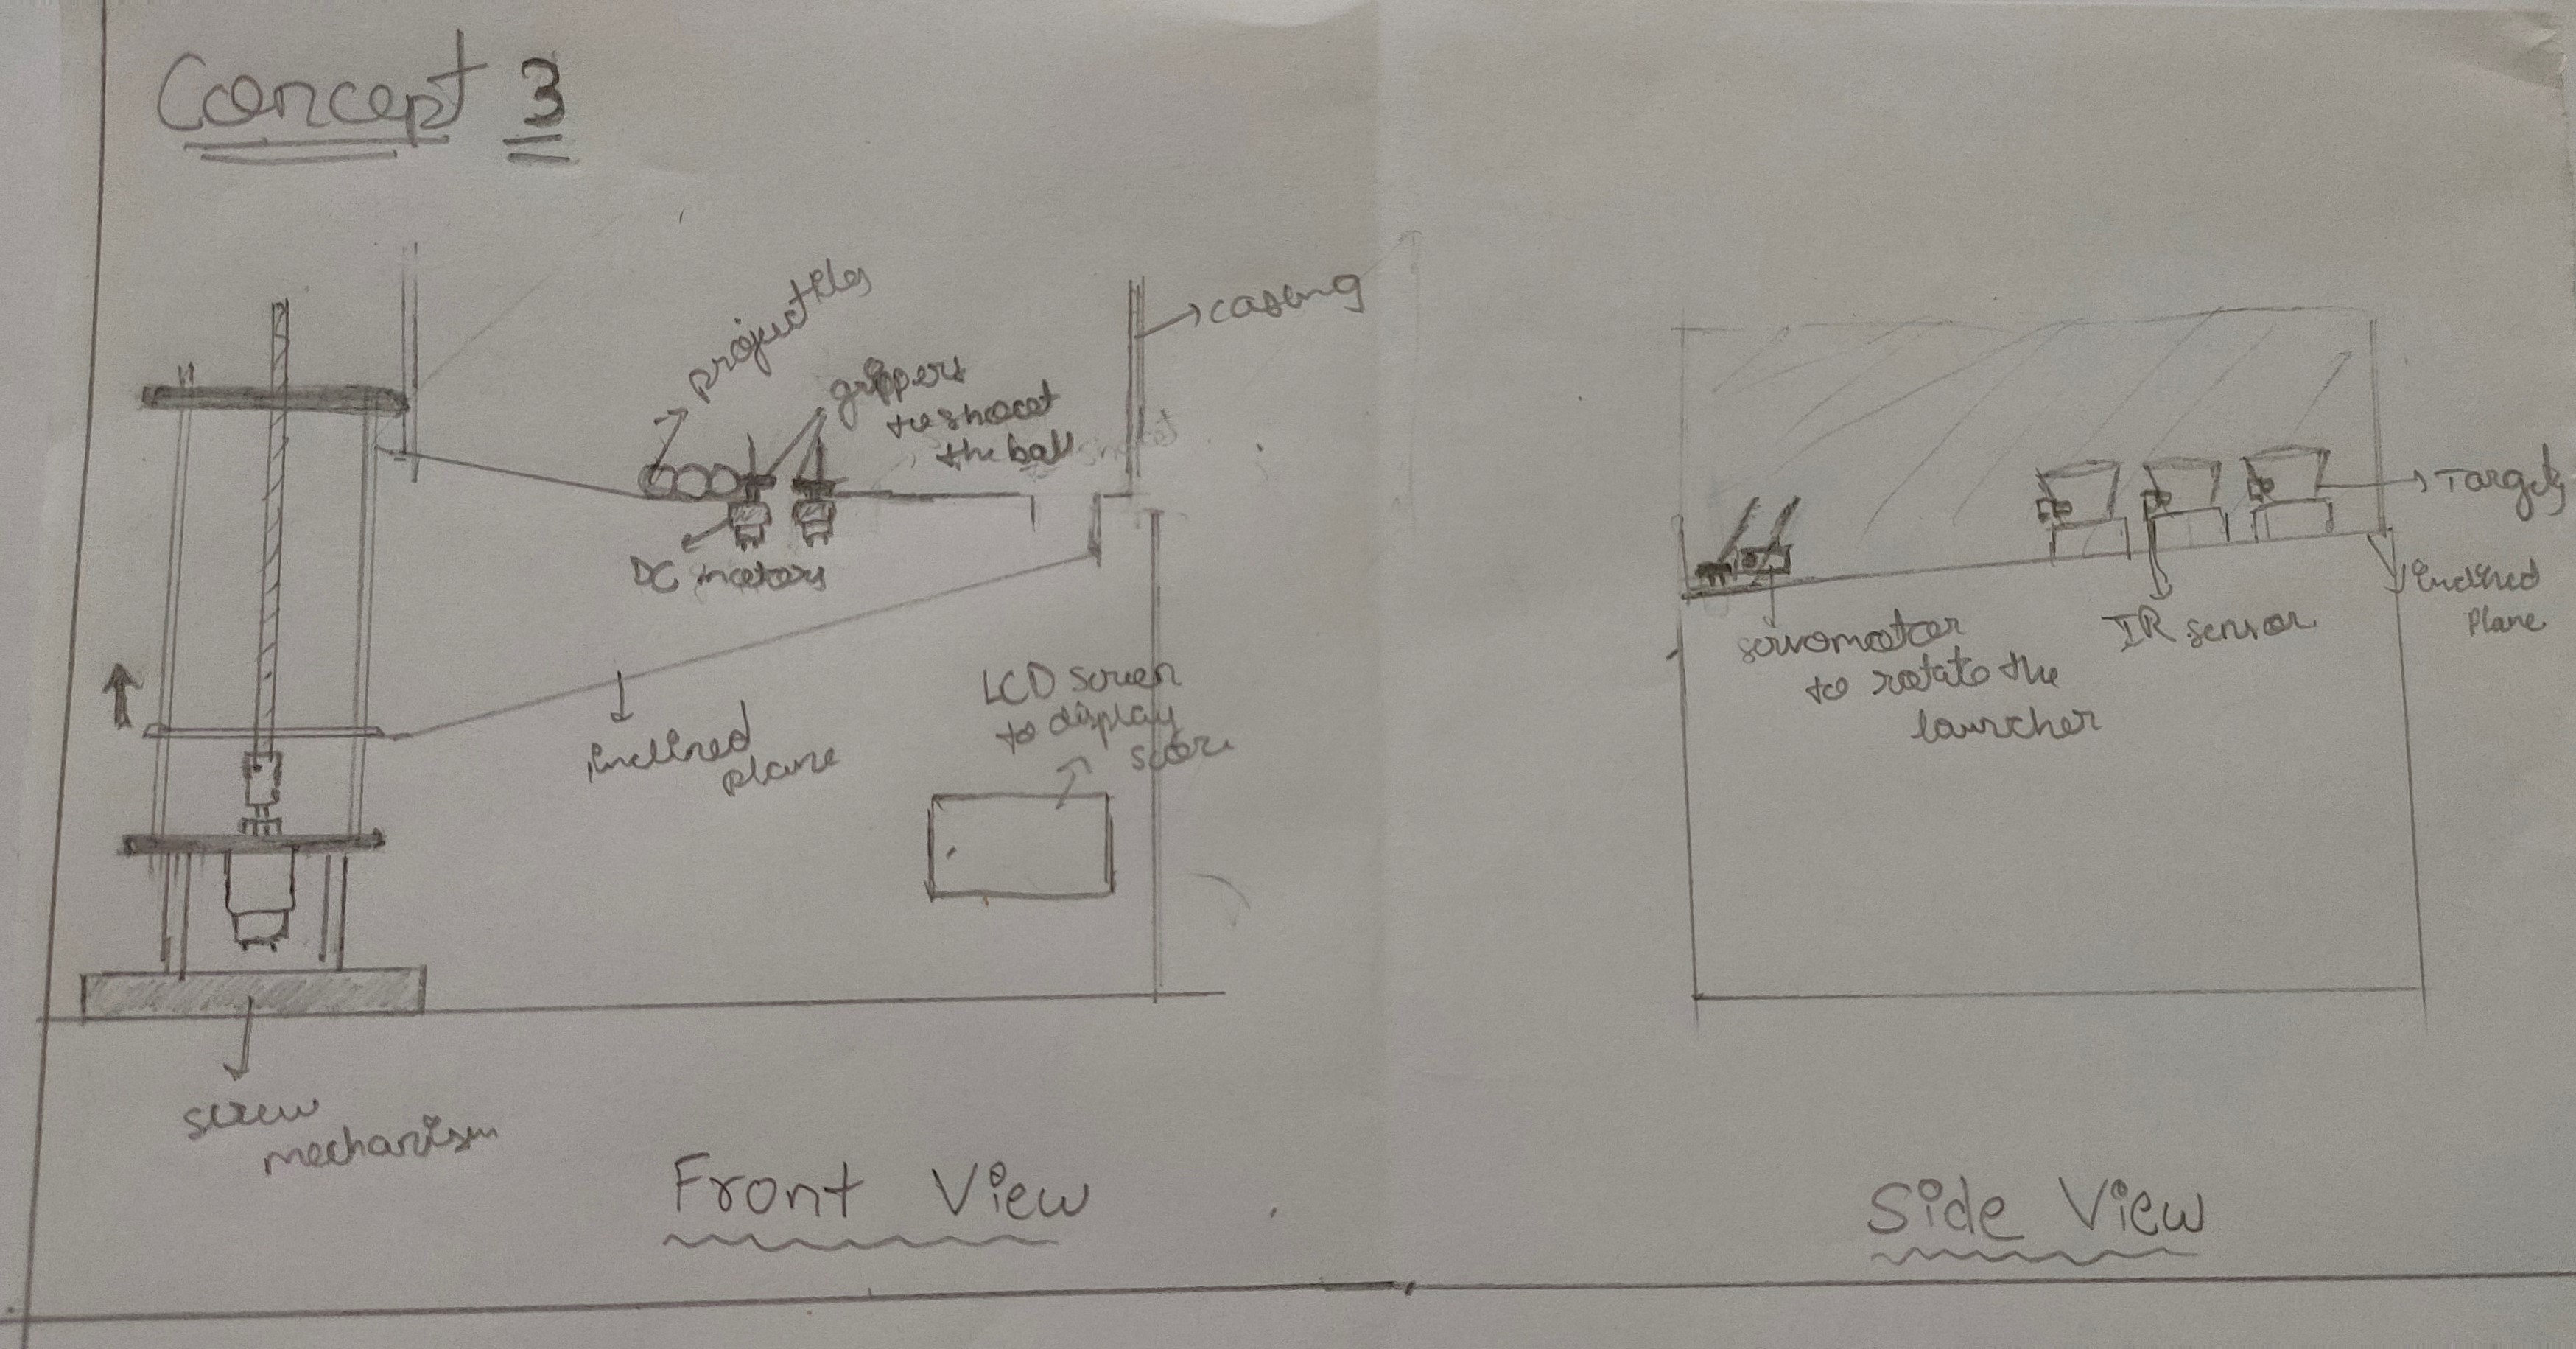 Concept 3
projectiles
grippers
to shoot
the ball
casing
DC motors
inclined
plane
LCD screen
to display
score
screw
mechanism
Front View
Targets
inclined
Plane
IR sensor
servomotor
to rotate the
launcher
Side View